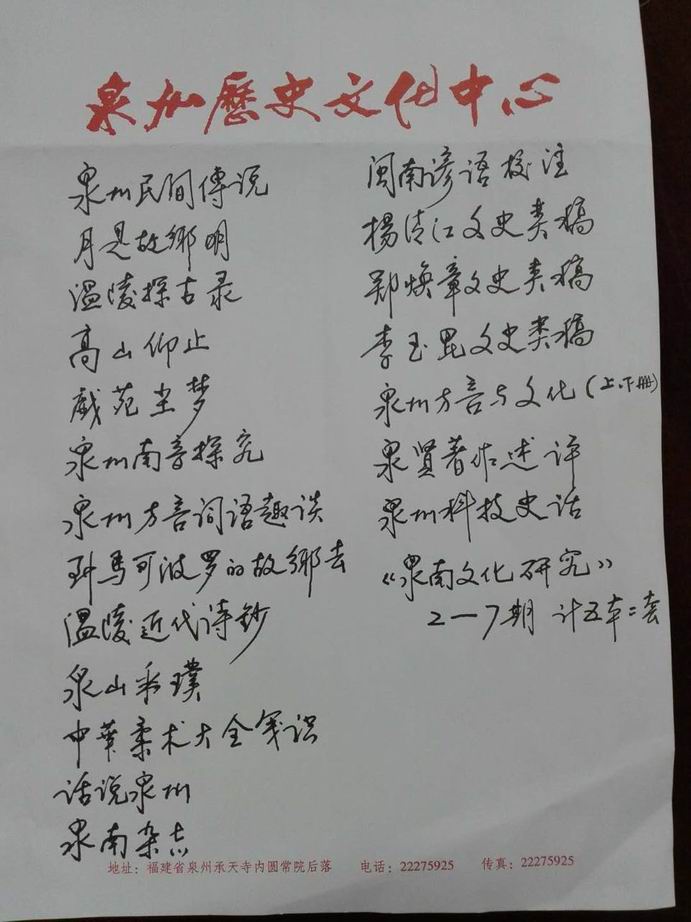 泉州歷史文化中心
泉州民间傳说
月是故鄉明
温陵探古录
高山仰止
戯苑尘梦
泉州南音探究
泉州方言词语趣谈
到马可波罗的故鄉去
温陵近代诗钞
泉山采璞
中華柔术大全笺识
话说泉州
泉南杂志
闽南谚语校注
楊清江文史类稿
郑焕章文史类稿
李玉昆文史类稿
泉州方言与文化(上.下册)
泉贤著作述评
泉州科技史话
《泉南文化研究》
2—7期 计五本二套
地址：福建省泉州承天寺内圆常院后落 电话：22275925 传真：22275925